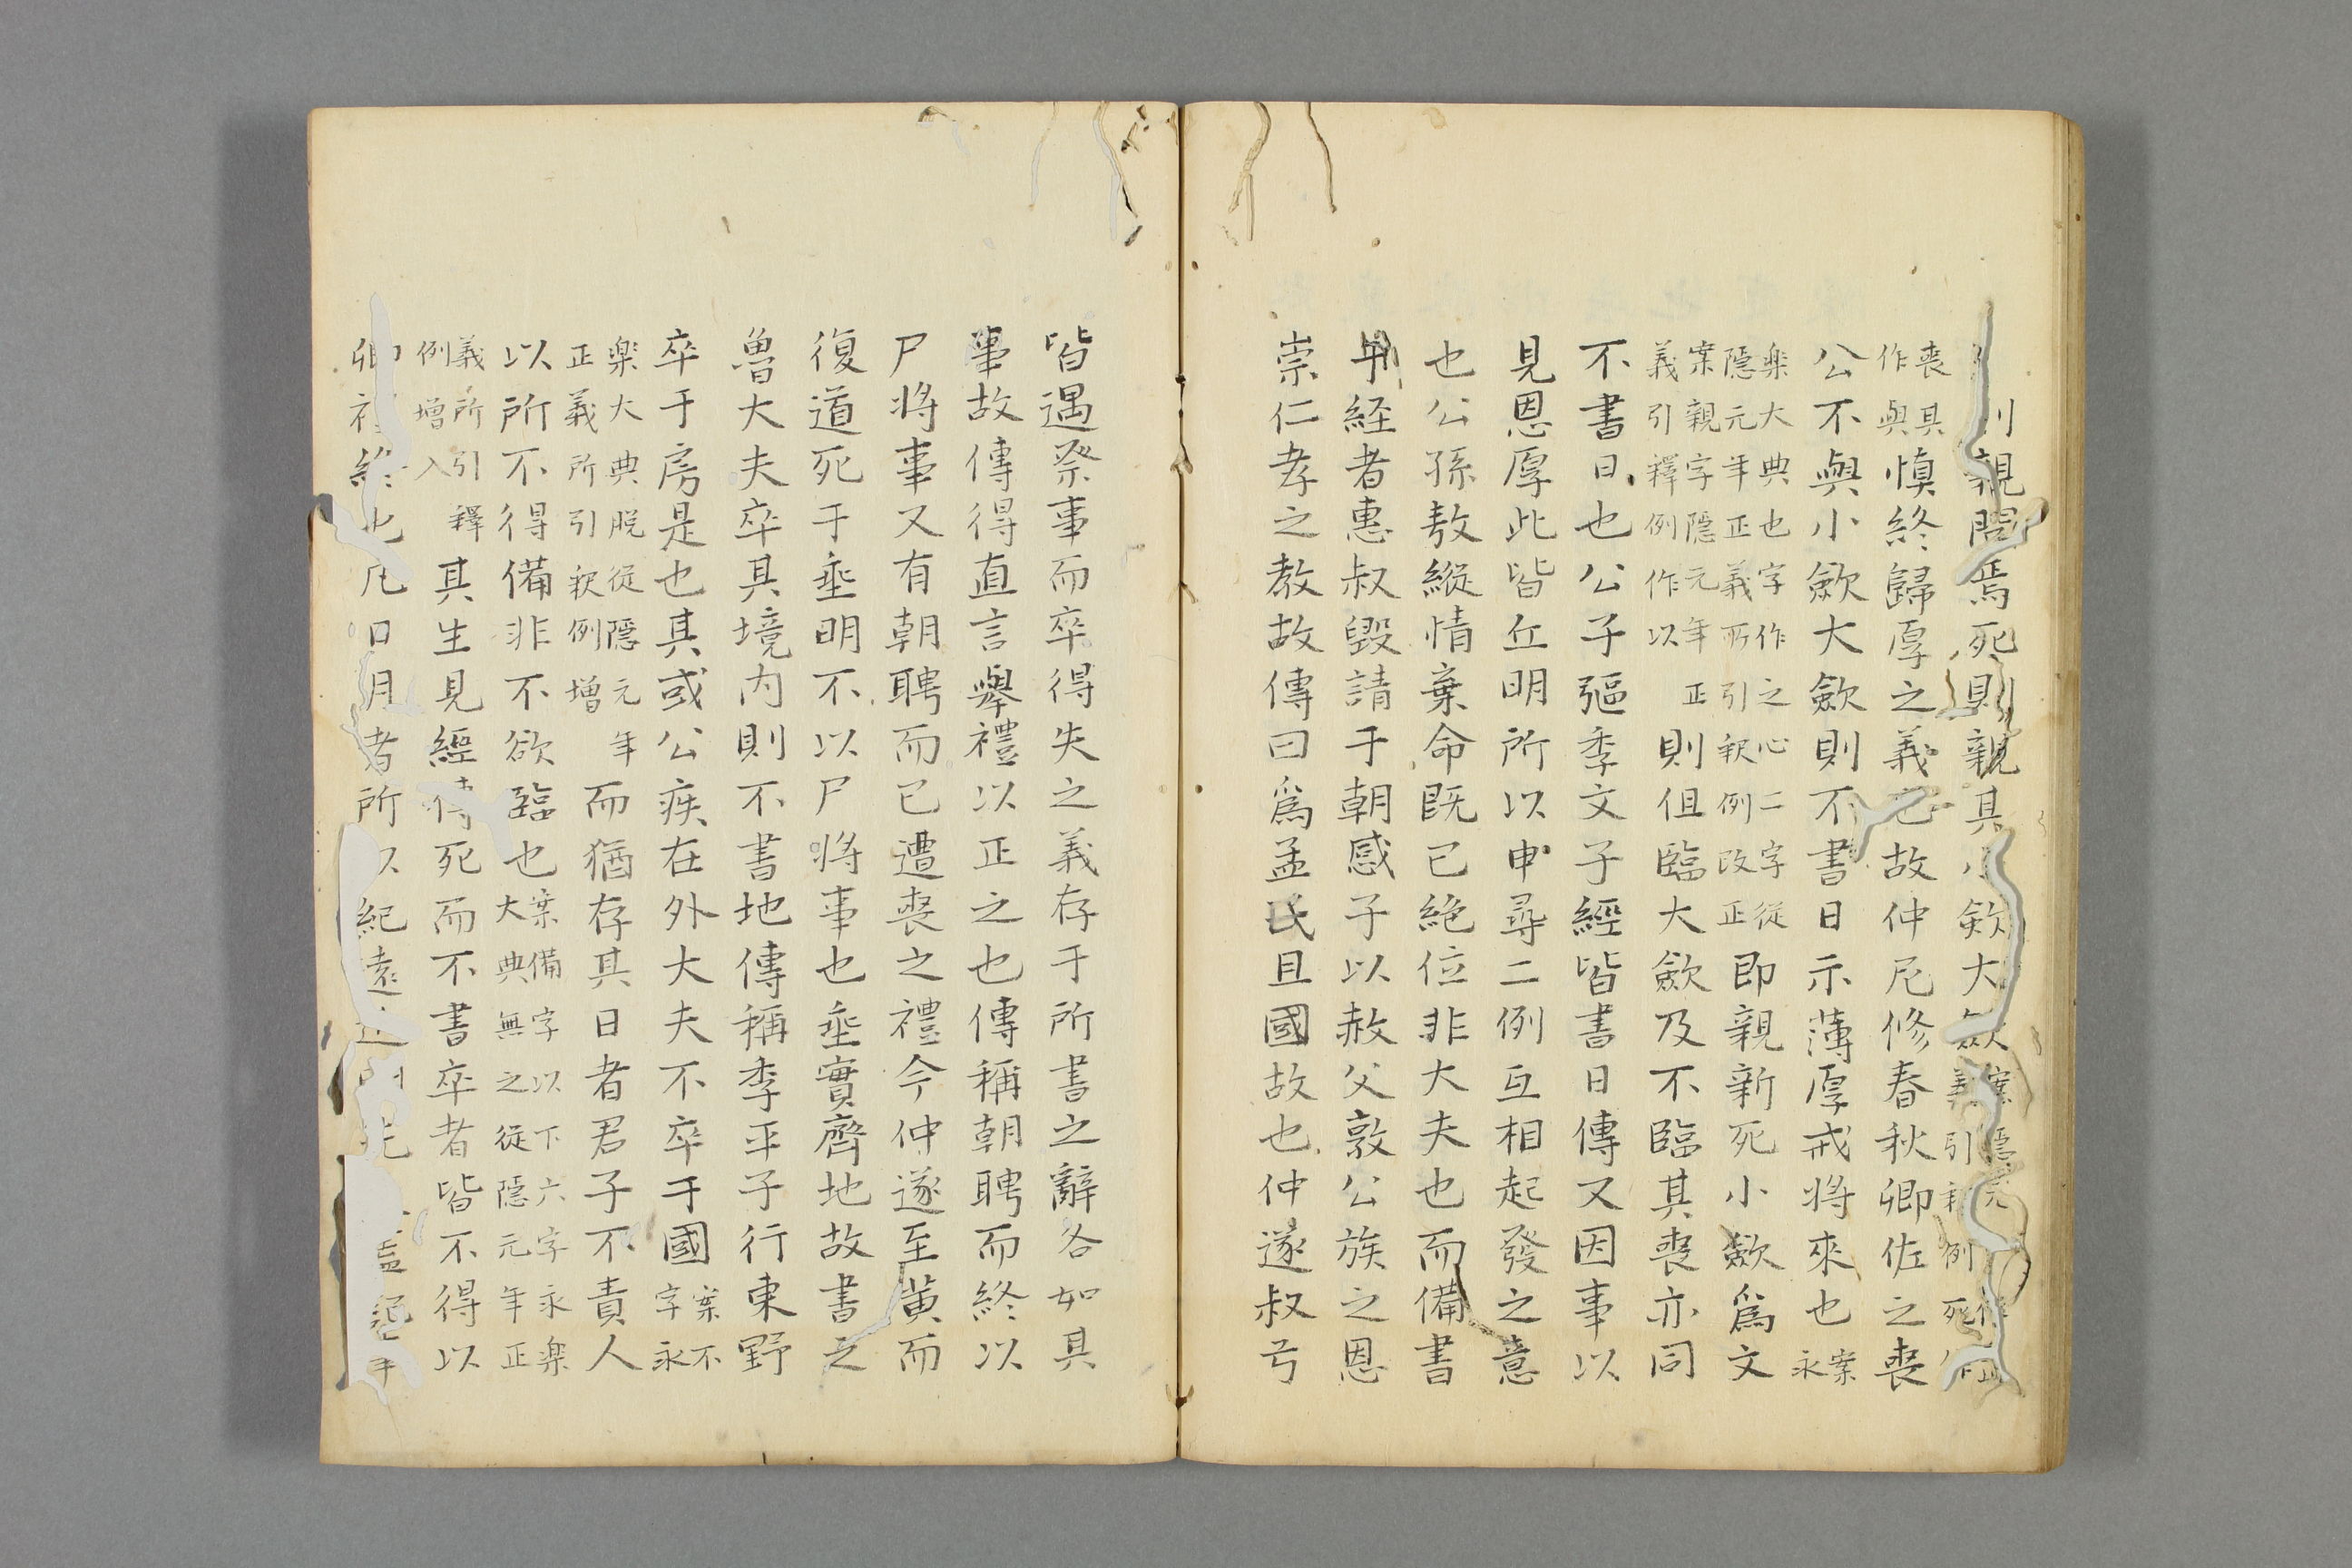 則親問焉死則親其小斂大斂案隱元年正義引釋例死作
喪其作與慎終歸厚之義也故仲尼修春秋卿佐之喪
公不與小歛大歛則不書日示薄厚戒將來也案永
楽大典也字作之心二字從隱元年正義所引釈例改正即親新死小歛爲文
案親字隱元年正義引釋例作以則但臨大歛及不臨其喪亦同
不書日也公子彄季文子經皆書日傳又因事以
見恩厚此皆丘明所以申尋二例互相起發之意
也公孫敖縱情棄命既已絶位非大夫也而備書
于経者惠叔毀請于朝感子以赦父敦公族之恩
崇仁孝之教故傳曰爲孟氏且國故也仲遂叔弓
皆遇祭事而卒得失之義存于所書之辭各如其
事故傳得直言舉禮以正之也傳稱朝聘而終以
尸将事又有朝聘而已遭喪之禮今仲遂至黄而
復道死于垂明不以尸將事也垂實齊地故書之
魯大夫卒其境内則不書地傳稱季平子行東野
卒于房是也其或公疾在外大夫不卒于國案不字永
楽大典脱從隱元年正義所引釈例增而猶存其日者君子不責人
以所不得備非不欲臨也案備字以下六字永楽大典無之從隱元年正
義所引釋例増入其生見經傳死而不書卒者皆不得以
卿禮終也凡日月者所以紀遠近